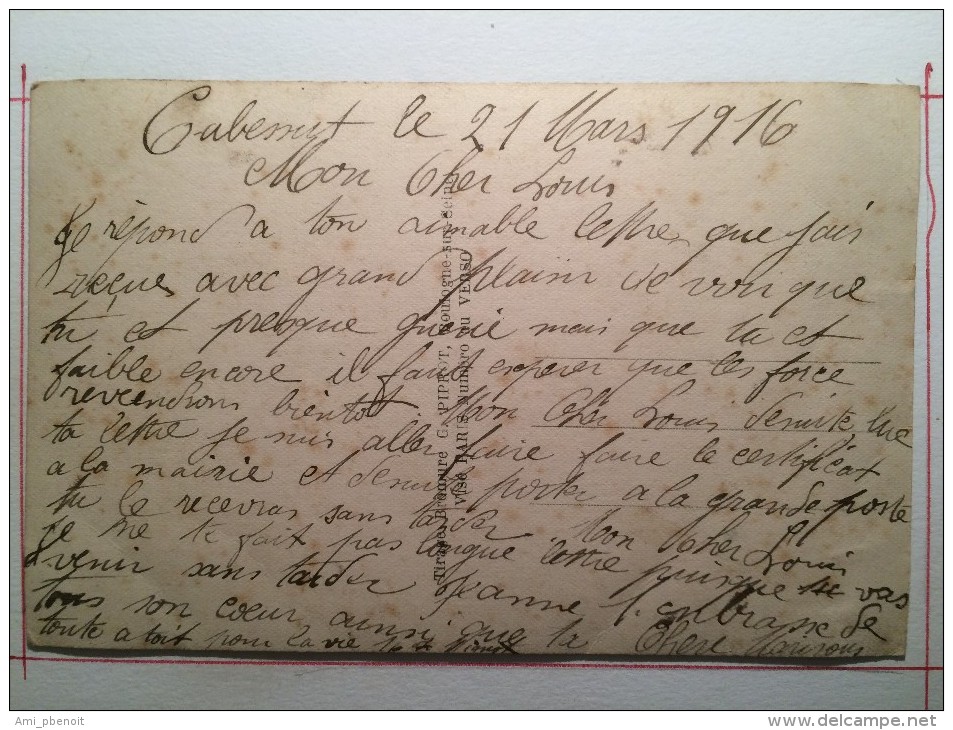 le 21 Mars 1916
Mon Cher Louis
Je répond a ton aimable lettre, que jais
reçue, avec grand plaisir je voir que
tu et presque guerie mais que tu et
faible encore il faut esperer que les force
revendrons bientot Mon Cher Louis desuite lue
ta lettre je suis aller faire faire le certificat
a la mairie et desuite porter a la grande poste
tu le recevras sans tarder Mon Cher Louis
je ne te fait pas longue lettre puisque tu vas
venir sans tarder Jeanne t'embrasse de
tous son coeur ainsi que ta Chere
toute a toit pour la vie
Tirage Bromure G. PIPROT, Boulogne-sur-Seine
Visé PARIS Numéro au VERSO
Ami_pbenoit
www.delcampe.net